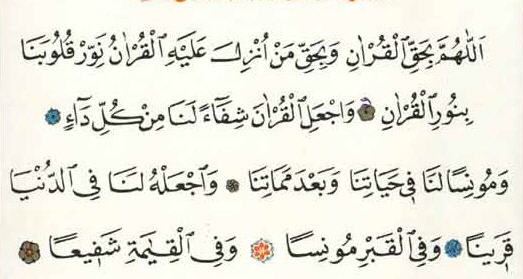 اَللّٰهُمَّ بِحَقِّ الْقُرْاٰنِ وَبِحَقِّ مَنْ اُنْزِلَ عَلَيْهِ الْقُرْاٰنُ نَوِّرْ قُلُوبَنَا
بِنُورِ الْقُرْاٰنِ وَاجْعَلِ الْقُرْاٰنَ شِفَٓاءً لَنَا مِنْ كُلِّ دَٓاءٍ
وَمُونِسًا لَنَا فِى حَيَاتِنَا وَبَعْدَ مَمَاتِنَا وَاجْعَلْهُ لَنَا فِى الدُّنْيَا
قَرٖينًا وَفِى الْقَبْرِ مُونِسًا وَفِى الْقِيٰمَةِ شَفٖيعًا